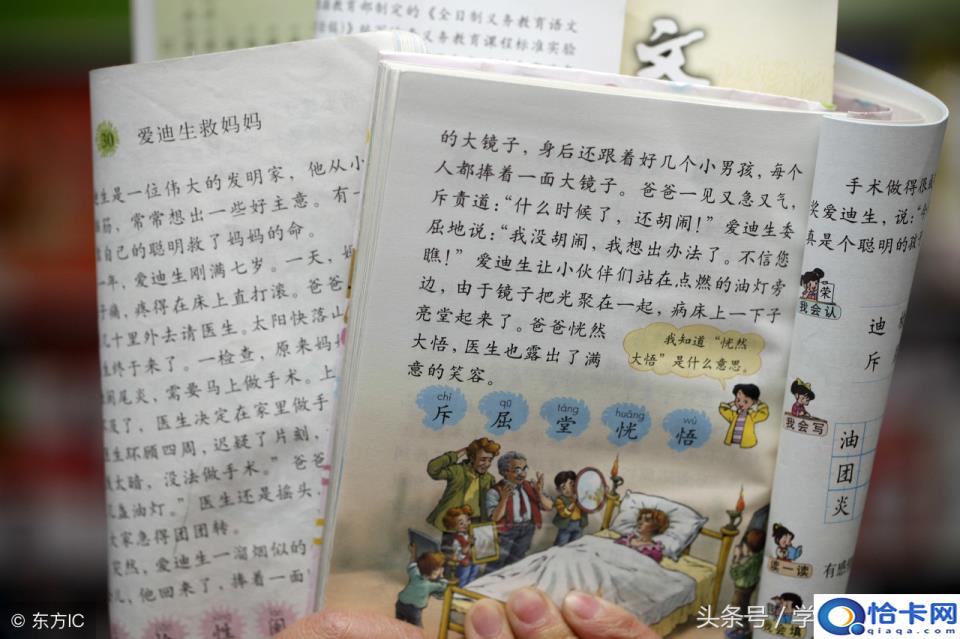 部制定的《全日制义务教育语文
义务教育课程标准实验
文
30
爱迪生救妈妈
生是一位伟大的发明家,他从小
筋,常常想出一些好主意。有一
自己的聪明救了妈妈的命。
年,爱迪生刚满七岁。一天,妈
子痛,疼得在床上直打滚。爸爸
几十里外去请医生。太阳快落山
生终于来了。一检查,原来妈妈
阑尾炎,需要马上做手术。上
了,医生决定在家里做手
生环顾四周,迟疑了片刻,
太暗,没法做手术。”爸爸
几盏油灯。”医生还是摇头,
大家急得团团转。
突然,爱迪生一溜烟似的
儿,他回来了,捧着一面
的大镜子,身后还跟着好几个小男孩,每个
人都捧着一面大镜子。爸爸一见又急又气,
斥责道:“什么时候了,还胡闹!”爱迪生委
屈地说:“我没胡闹,我想出办法了。不信您
瞧!”爱迪生让小伙伴们站在点燃的油灯旁
边,由于镜子把光聚在一起,病床上一下子
亮堂起来了。爸爸恍然
大悟,医生也露出了满
意的笑容。
我知道“恍然
大悟”是什么意思。
chì qū táng huǎng wù
斥 屈 堂 恍 悟
手术做得很
奖爱迪生,说:“
真是个聪明的孩
荣
我会认
迪
斥
我会写
油
团
炎
读一读
有感
我会填
© 东方IC
头条号 / 学
恰卡网
qiaqa.com